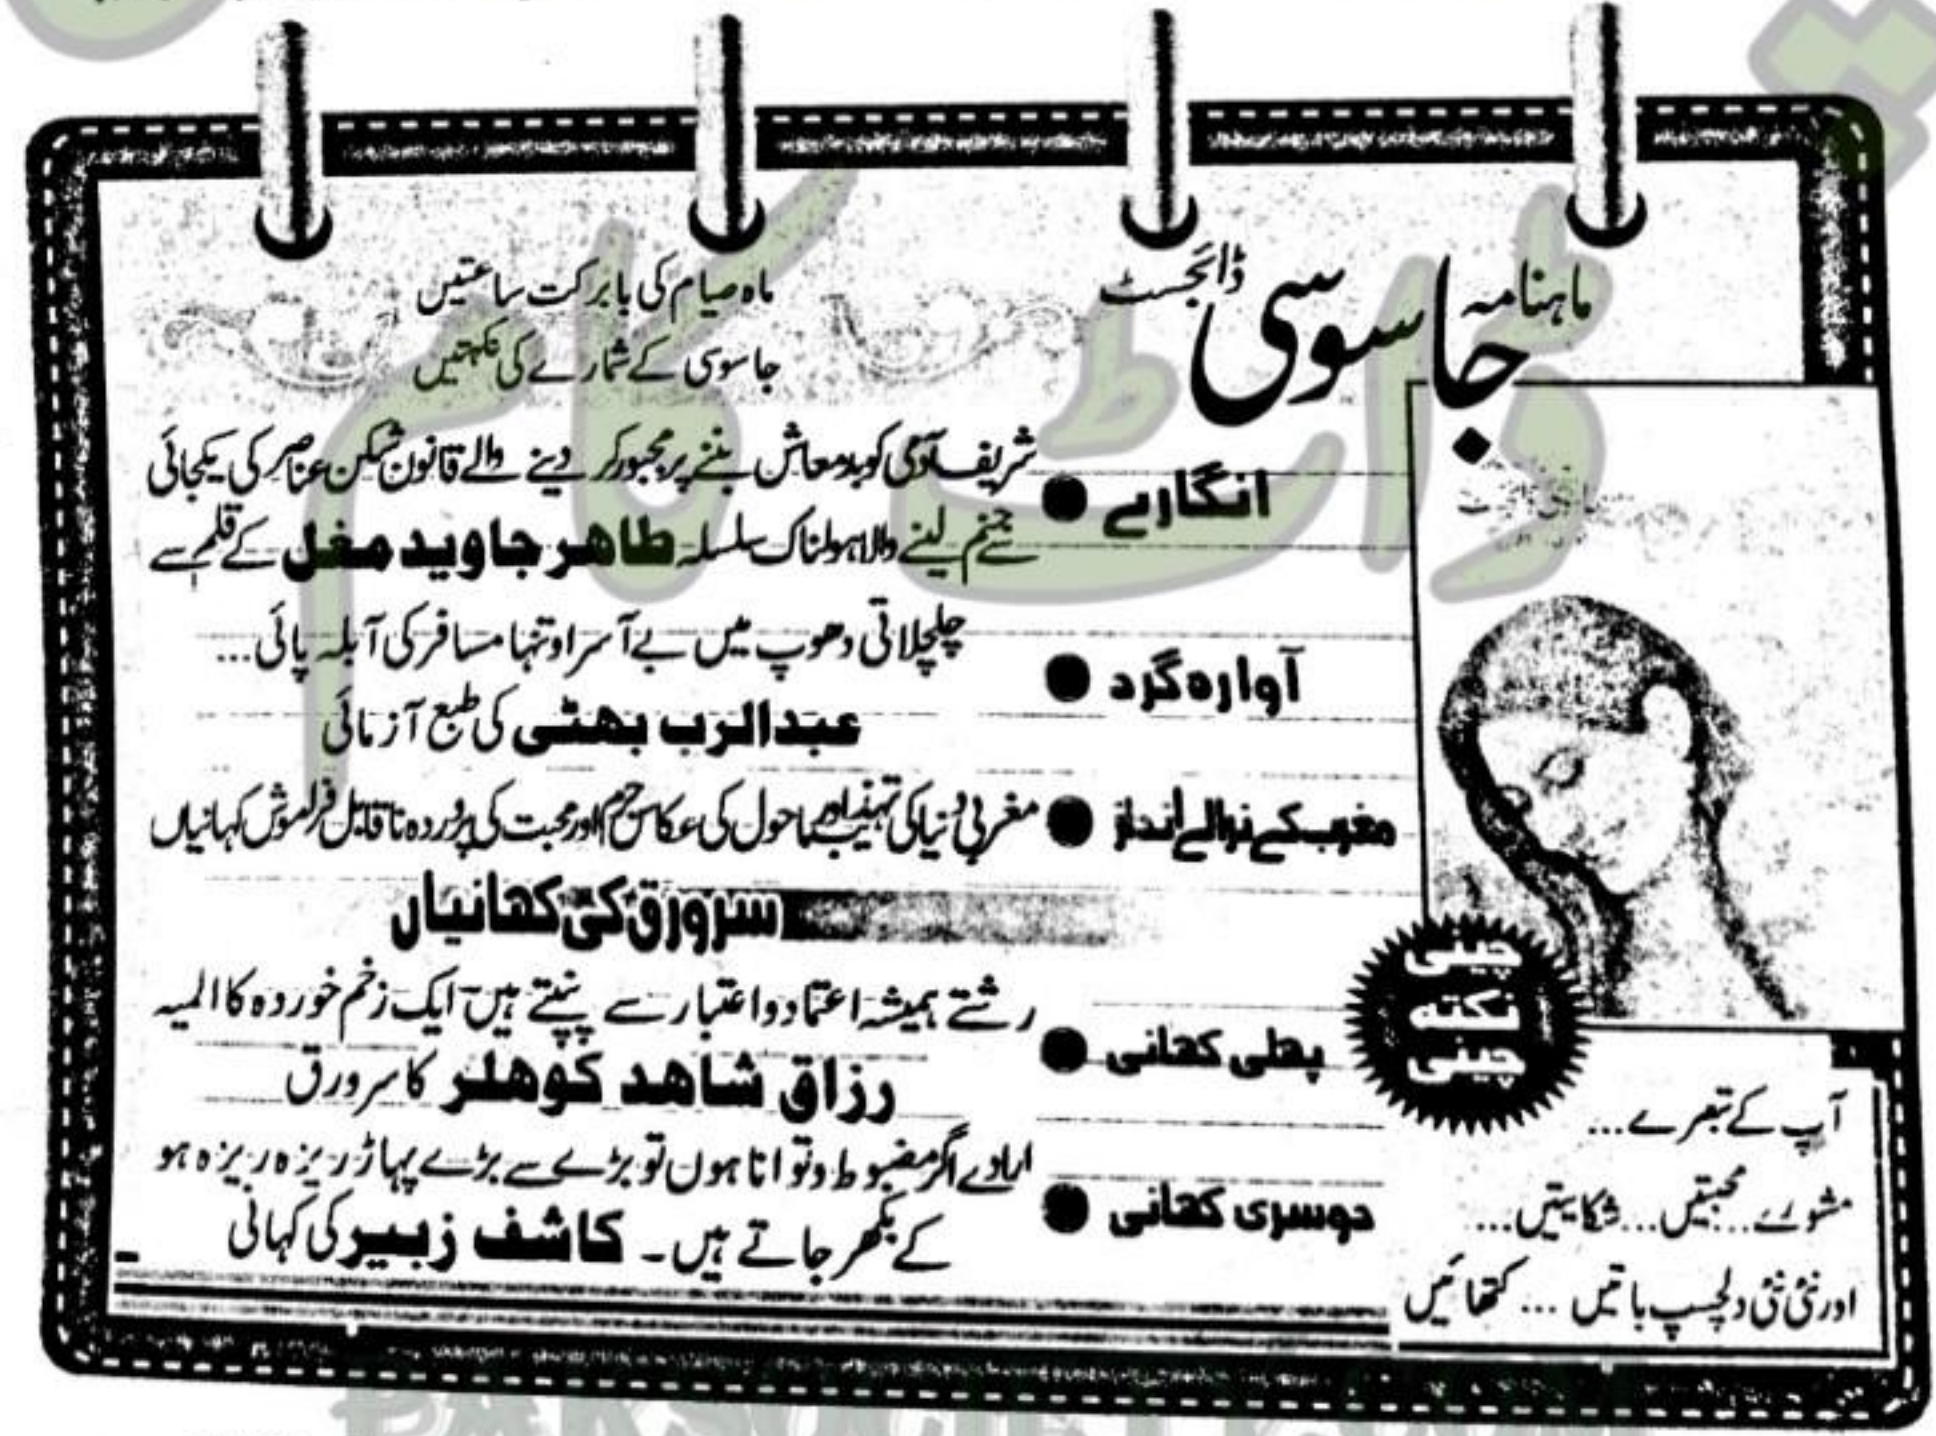 ماہنامہ جاسوسی ڈائجسٹ
ماہ صیام کی بابرکت ساعتیں
جاسوسی کے شمارے کی نکہتیں
انگارے ●
شریف آدمی کو بدمعاش بننے پر مجبور کر دینے والے قانون شکن عناصر کی یکجائی
سے جنم لینے والا ہولناک سلسلہ طاہر جاوید مغل کے قلم سے
آوارہ گرد ●
چلچلاتی دھوپ میں بے آسرا و تنہا مسافر کی آبلہ پائی...
عبدالرب بھٹی کی طبع آزمائی
مغرب کے نرالے انداز ●
مغربی دنیا کی تہذیب اور ماحول کی عکاس جرم اور محبت کی پروردہ ناقابل فراموش کہانیاں
سرورق کی کہانیاں
پہلی کہانی ●
رشتے ہمیشہ اعتماد و اعتبار سے پنپتے ہیں ایک زخم خوردہ کا المیہ
رزاق شاہد کوہلر کا سرورق
دوسری کہانی ●
ارادے اگر مضبوط و توانا ہوں تو بڑے سے بڑے پہاڑ ریزہ ریزہ ہو
کے بکھر جاتے ہیں۔ کاشف زبیر کی کہانی
چینی
نکتہ
چینی
آپ کے تبصرے...
مشورے... محبتیں... شکایتیں...
اور نئی نئی دلچسپ باتیں ... کتھائیں
ڈاٹ کام